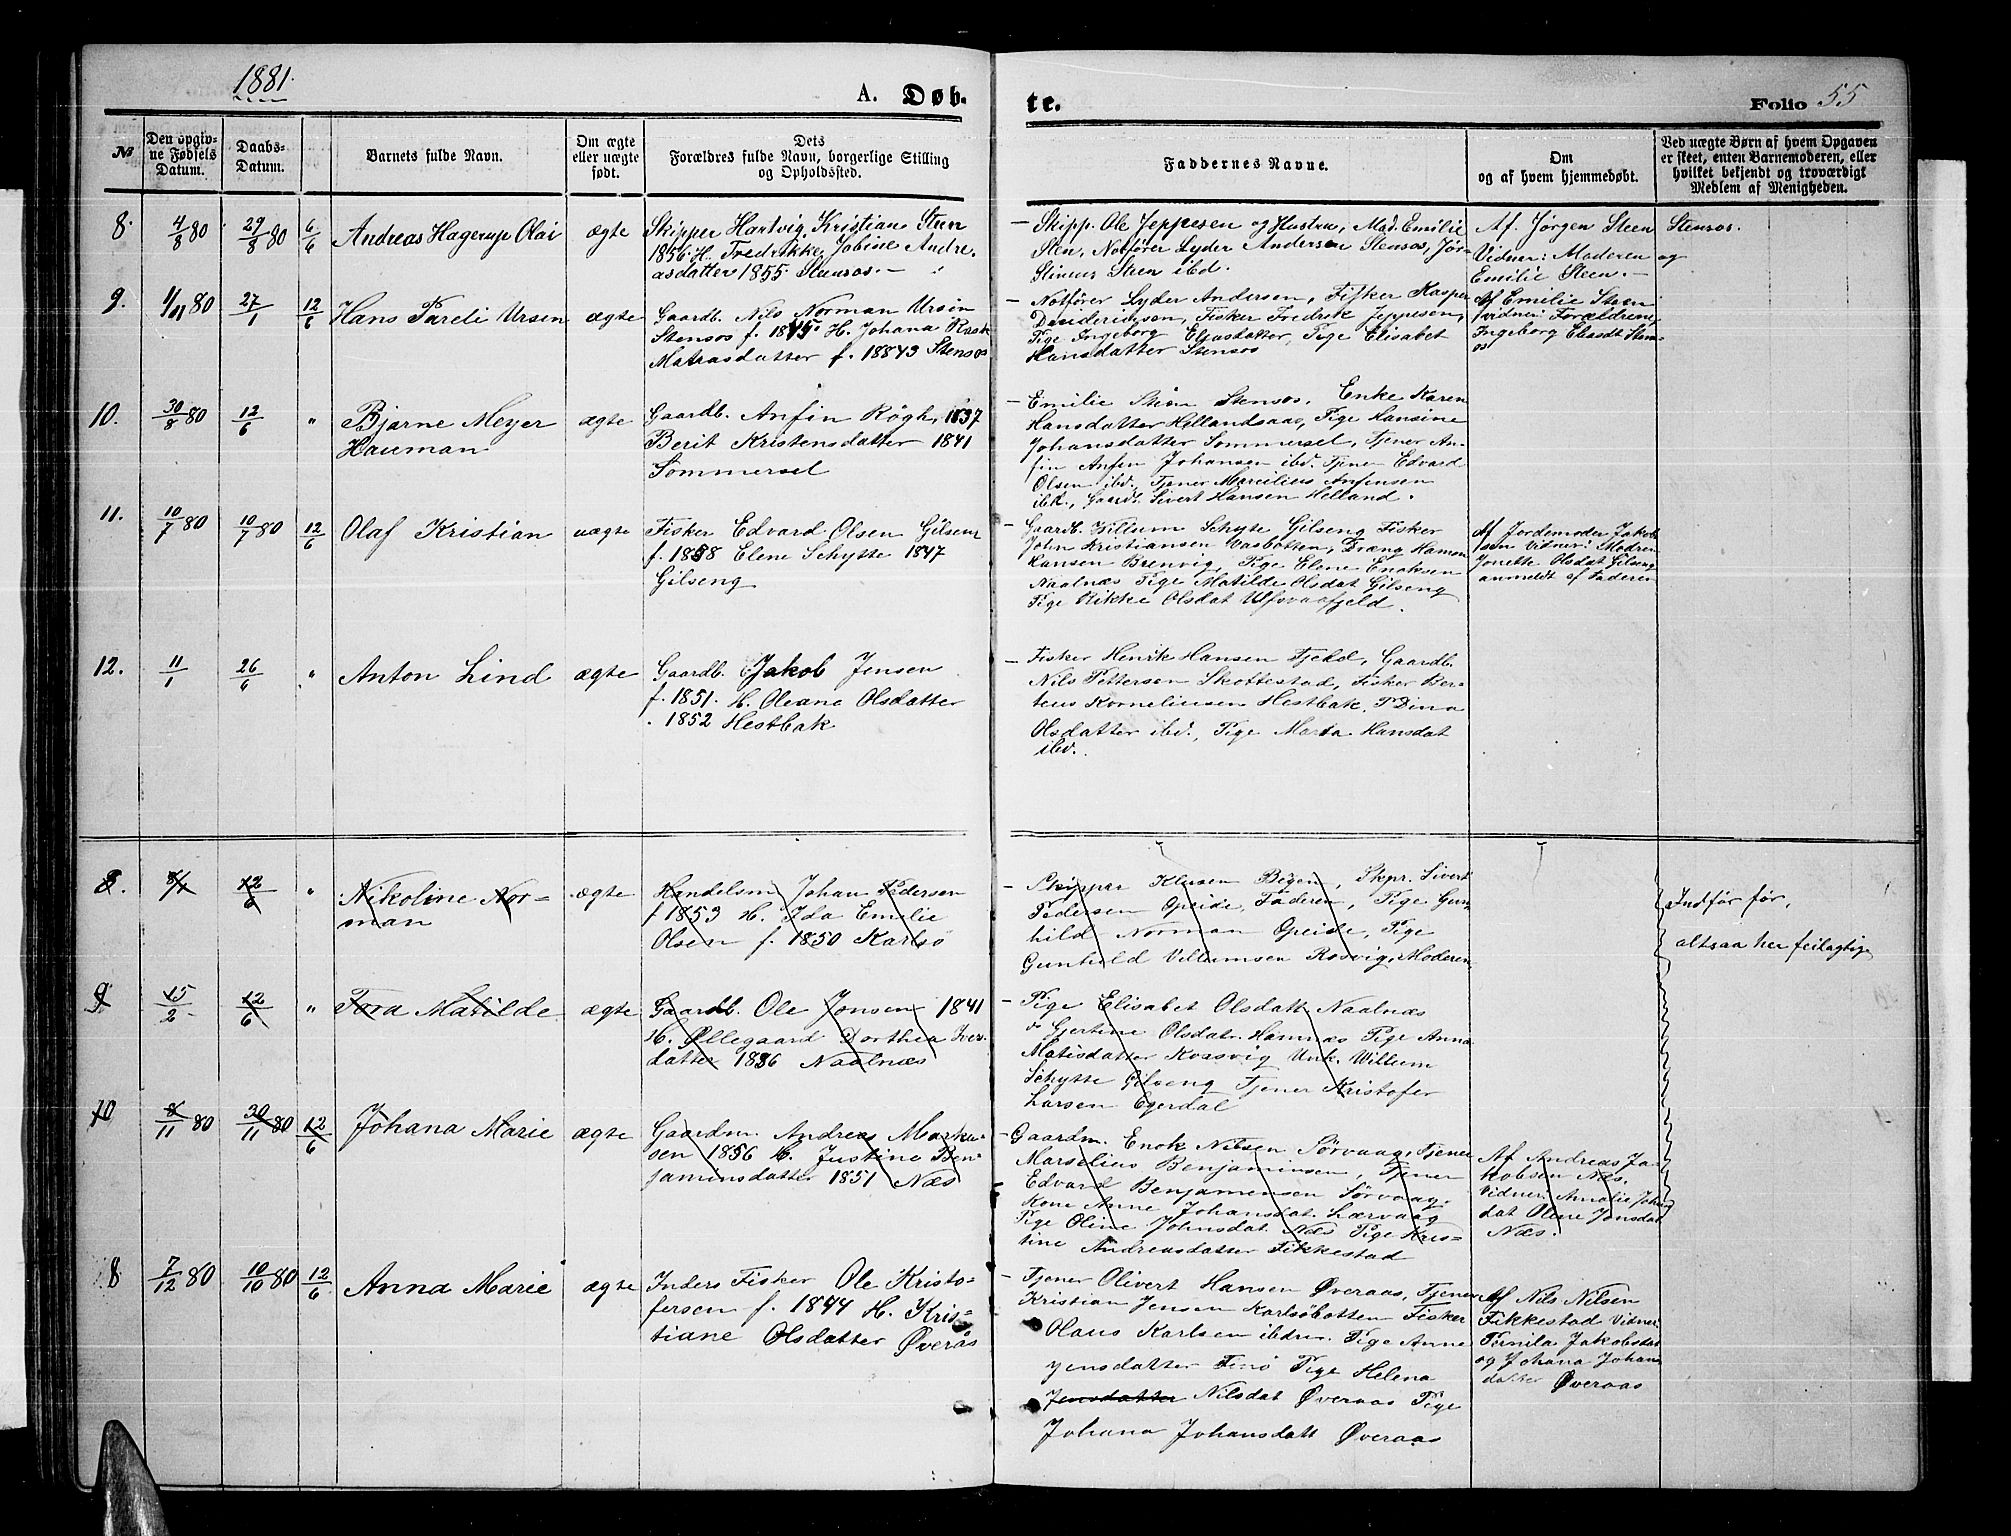 1881.
A. Døb-
te.
Folio 55
№
Den opgiv-
ne Fødsels
Datum.
Daabs-
Datum.
Barnets fulde Navn.
Om ægte
eller uægte
født.
Dets
Forældres fulde Navn, borgerlige Stilling
og Opholdssted.
Faddernes Navne.
Om
og af hvem hjemmedøbt.
Ved uægte Børn af hvem Opgaven
er skeet, enten Barnemoderen, eller
hvilket bekjendt og troværdigt
Medlem af Menigheden.
8. 4/8 80 29/8 80 6/6 Andreas Hagerup Olai ægte
Skipper Hartvig Kristian Steen
1856. H. Fredrikke Jobine Andre.
asdatter 1855. Stensos. –
– Skipp. Ole Jeppesen og Hustru, Mad. Emilie
Sten, Notfører Lyder Andersen Stensos, Jør-
Steen ibd.
Af. Jørgen Steen Stensos.
Vidner: Moderen og
Emilie Steen. –
9. 1/11 80 27/1 12/6 Hans Pareli Ursin ægte
Gaardb. Nils Norman Ursin
Stensos f. 1845 H. Johana Rask
Matiasdatter f. 18843 Stensos
– Notfører Lyder Andersen, Fisker Kasper
Desideriusen, Fisker Fredrik Jeppesen,
Pige Ingeborg Eliasdatter, Pige Elisabet
Hansdatter Stensos
Af Emilie Steen
Vidner: Forældrene,
Ingeborg Eliasdt Sten-
os
10. 30/8 80 12/6 " Bjarne Meyer
Hauman
ægte
Gaardb. Anfin Røgh, 1837
Berit Kristensdatter 1841
Sommersel
– Emilie Steen Stensos. Enke Karen
Hansdatter Hellandsaas, Pige Hansine
Johansdatter Sommersel, Tjener An-
fin Anfin Johansen ibd. Tjener Edvard
Olsen ibd., Tjener Marcilius Anfinsen
ibd., Gaardb. Sivert Hansen Helland.
11. 10/7 80 10/7 80 12/6 Olaf Kristian uægte
Fisker Edvard Olsen Gilseng
f. 1858 Elene Schytte 1847
Gilseng
– Gaardb. Villum Schyte Gilseng Fisker
John Kristiansen Vasbotten, Dræng Hamon
Hansen Brenvig, Pige Elene Enoksen
Naalnæs Pige Matilde Olsdat Gilseng
Pige Rikke Olsdat Ulfvaafjeld.
Af Jordemoder Jakob-
sen Vidner: Modren
Jonette Olsdat Gilseng
anmeldt af Faderen
12. 11/1 26/6 " Anton Lind ægte
Gaardb. Jakob Jensen
f. 1851. H. Oleana Olsdatter
. 1852 Hestbak
– Fisker Henrik Hansen Fjeld, Gaardb.
Nils Pettersen Skottestad, Fisker Ber-
teus Korneliusen Hestbak, P Dina
Olsdatter ibd., Pige Marta Hansdat
ibd.
8. 8/1 12/6 " Nikoline Nor-
man
ægte
Handelsm. Johan Pedersen
f 1853 H. Ida Emilie
Olsen f. 1850 Karlsø
– Skipper Klusen Bergen, Skpr. Sivert
Pedersen Opeide, Faderen, Pige Gun-
hild Norman Opeide, Pige
Gunhild Villumsen Rosvig, Moderen
Indfør før,
altsaa her feilagtig
9 15/2 12/6 " Tora Matilde ægte
Gaardb. Ole Jonsen 1841
H. Øllegaard Dorthea Iver-
datter 1836 Naalnæs
– Pige Elisabet Olsdatt Naalnæs
" Gjertine Olsdatr. Hamnæs Pige Anna
Matisdatter Kvasvig Unk. Willum
Schytte Gilseng Tjener Kristofer
Larsen Egerdal
10 8/11 80 30/11 80 12/6 Johana Marie ægte
Gaardm. Andreas Marku-
sen 1856 H. Justine Ben-
jaminsdatter 1851 Næs
– Gaardm. Enok Nilsen Sørvaag, Tjener
Marselius Benjaminsen, Tjener
Edvard Benjamensen Sørvaag.
Kone Anne Johansdat. Lærvaag
Pige Oline Johnsdat Næs Pige Kris-
tine Andreasdatter Fikkestad
Af Andreas Ja-
kobsen Næs.
Vidner: Amalie Johan
dat Olene Jonsdat
Næs.
8 7/12 80 10/10 80 12/6 Anna Marie ægte
Inders Fisker Ole Kristo-
fersen f. 1844 H. Kris-
tiane Olsdatter Øverås
– Tjener Olivert Hansen Øveraas, Tjener
Kristian Jensen Karlsøbotten Fisker
Olaus Karlsen ibdm. Pige Anne
Jensdatter Finø Pige Helena
Jensdatter Nilsdat Øveraas Pige
Johana Johansdatt Øveraas
Af Nils Nilsen
Fikkestad Vidner:
Pernila Jakobsdat
og Johana Johans
datter Øveraas